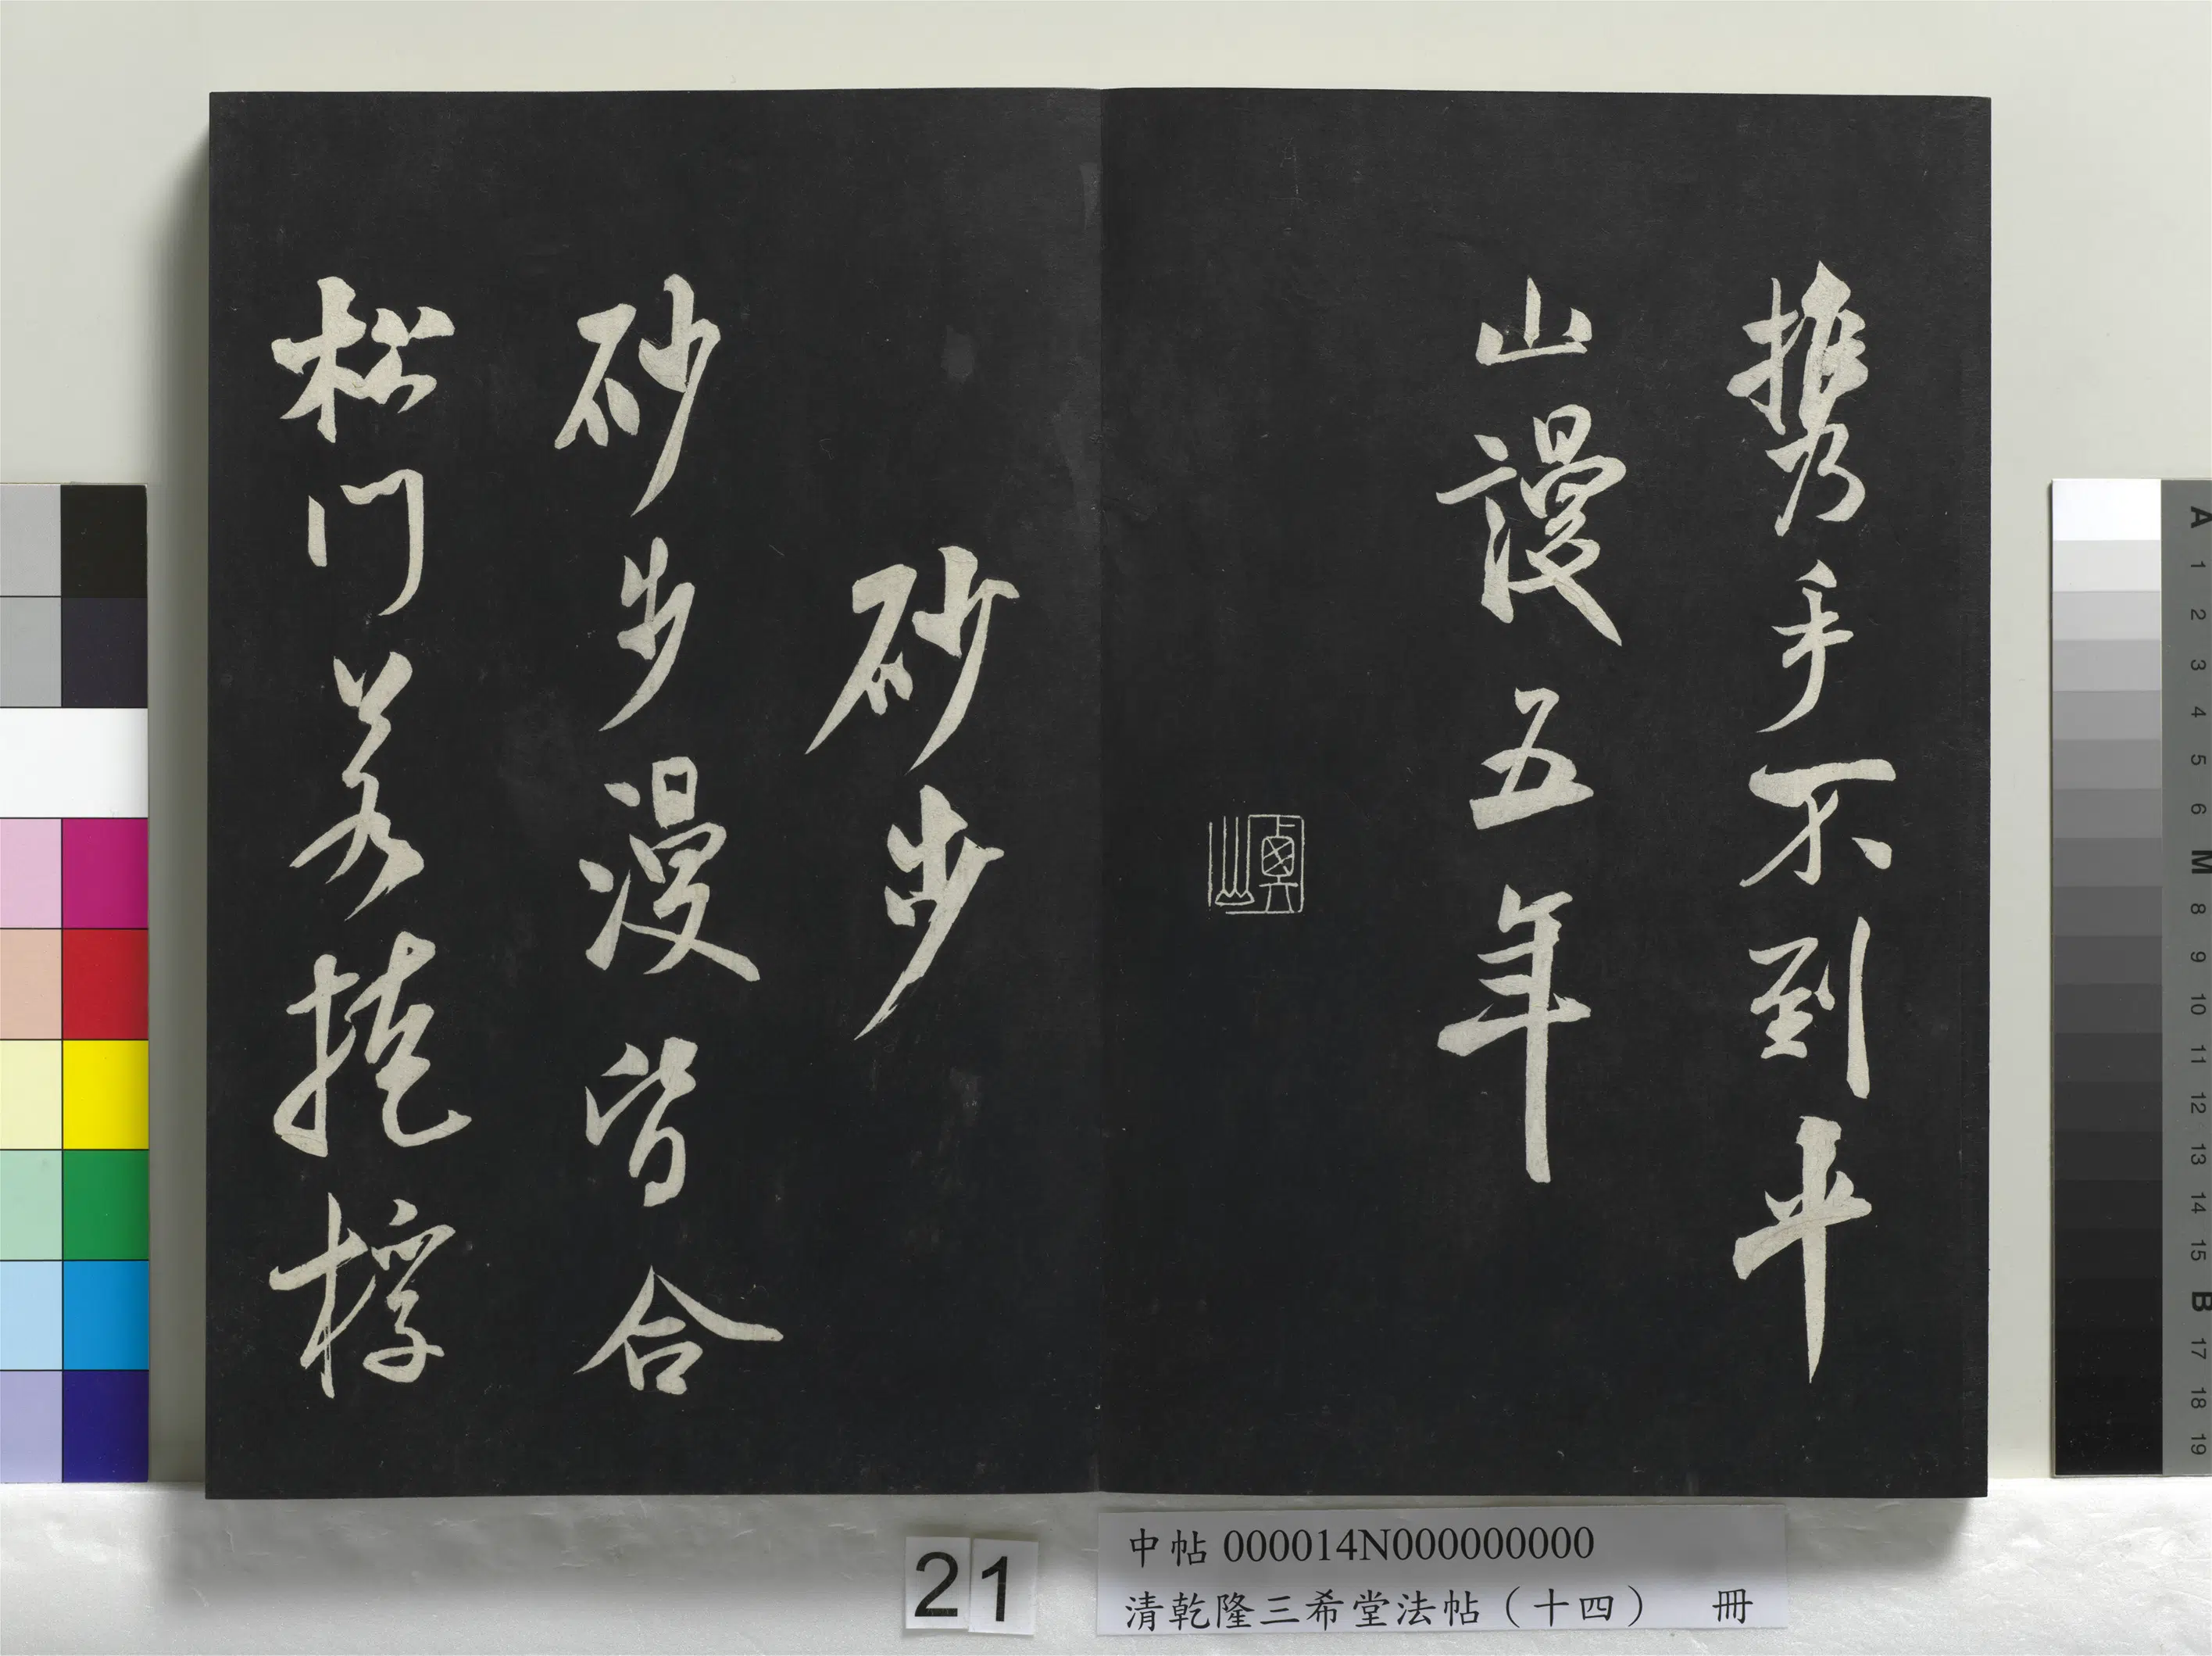 携手不到平
山謾五年
砂步
砂步漫皆合
松門若掩桴
21
中帖 000014N000000000
清乾隆三希堂法帖（十四） 冊
A 1 2 3 4 5 6 M 8 9 10 11 12 13 14 15 B 17 18 19